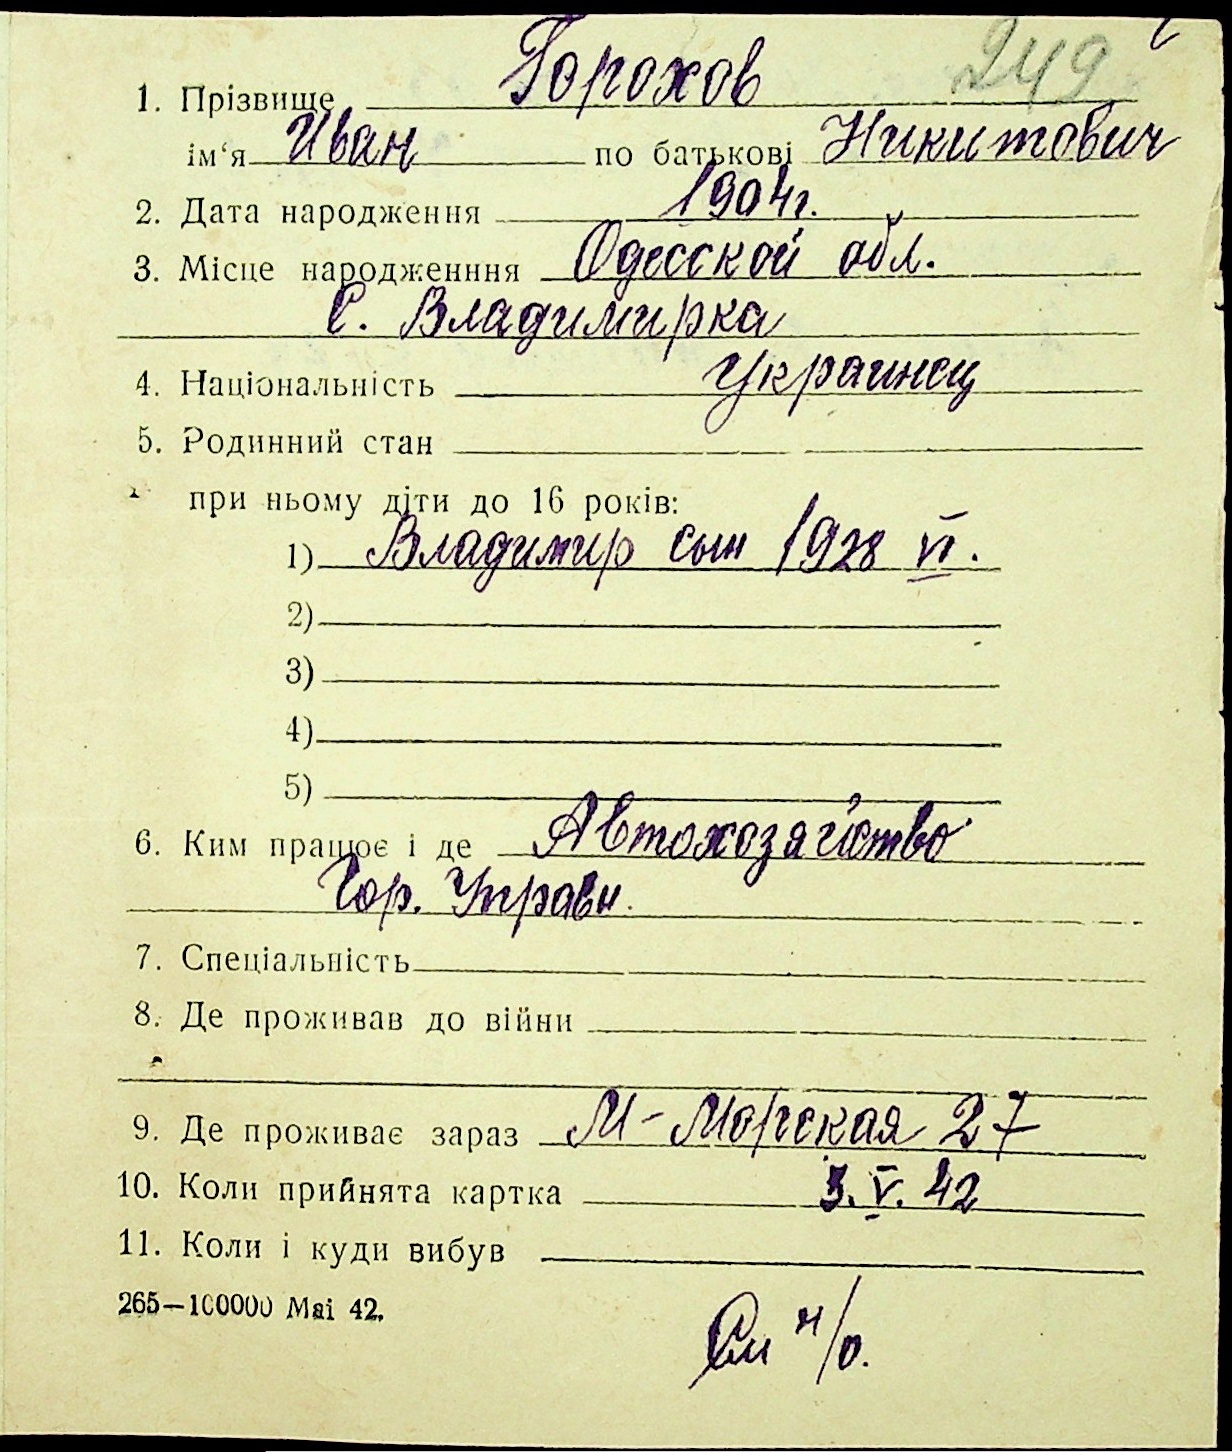 249
1. Прізвище Горохов
ім'я Иван по батькові Никитович
2. Дата народження 1904 г.
3. Місце народженння Одесской обл.
С. Владимирка
4. Національність Украинец
5. Родинний стан
при ньому діти до 16 років:
1) Владимир сын 1928 VI.
2)
3)
4)
5)
6. Ким працює і де Автохозяйство
Гор. Управи.
7. Спеціальність
8. Де проживав до війни
9. Де проживає зараз М-Морская 27
10. Коли прийнята картка 3. V. 42
11. Коли і куди вибув
265—100000 Mai 42.
См н/о.